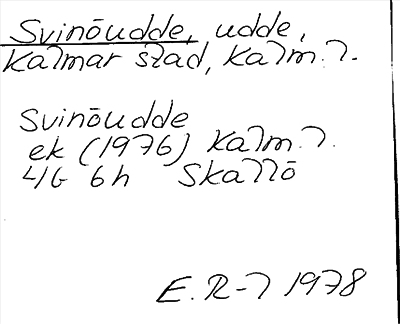 Svinöudde, udde,
Kalmar stad, Kalm. l.
Svinöudde
ek (1976) Kalm. l.
4G 6h Skallö
E. R-l 1978